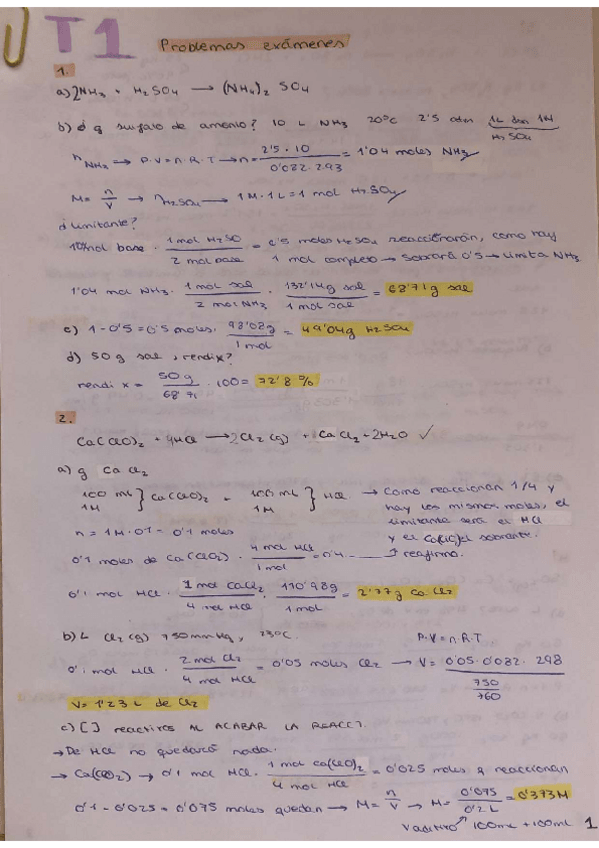 T1 Problemas exámenes
1.
a) 2NH₃ + H₂SO₄ → (NH₄)₂ SO₄
b) ¿g sulfato de amonio? 10 L NH₃ 20ºC 2'5 atm 1L dsn 1M
H₂SO₄
n NH₃ → P.V=n.R.T → n = 2'5 · 10 / 0'082·293 = 1'04 moles NH₃
M = n/V → n H₂SO₄ → 1M · 1L = 1 mol H₂SO₄
¿limitante?
mol base · 1 mol H₂SO / 2 mol base = 0'5 moles H₂SO₄ reaccionarán, como hay
1 mol completo → sobrará 0'5 → limita NH₃
1'04 mol NH₃ · 1 mol sal / 2 mol NH₃ · 132'14g sal / 1 mol sal = 68'71g sal
c) 1-0'5 = 0'5 moles · 98'08g / 1 mol = 49'04g H₂SO₄
d) 50 g sal, rendix?
rendi x = 50 g / 68'71 · 100 = 72'8 %
2.
Ca(ClO)₂ + 4HCl → 2Cl₂ (g) + CaCl₂ + 2H₂O ✓
a) g CaCl₂
100 mL 1M } Ca(ClO)₂ + 100 mL 1M } HCl → Como reaccionan 1/4 y
hay los mismos moles, el
limitante será el HCl
n = 1M · 0'1 = 0'1 moles
y el sobrante.
0'1 moles de Ca(ClO₂) · 4 mol HCl / 1 mol = 0'4 → reafirmo.
0'1 mol HCl · 1 mol CaCl₂ / 4 mol HCl · 110'98g / 1 mol = 2'77g CaCl₂
b) L Cl₂ (g) 750 mmHg, 25ºC. P.V=n.R.T
0'1 mol HCl · 2 mol Cl₂ / 4 mol HCl = 0'05 moles Cl₂ → V = 0'05·0'082·298 / 750/760
V = 1'23 L de Cl₂
c) [ ] reactivos AL ACABAR LA REACC?.
→ De HCl no quedará nada.
→ Ca(ClO₂) → 0'1 mol HCl · 1 mol Ca(ClO)₂ / 4 mol HCl = 0'025 moles q reaccionan
0'1 - 0'025 = 0'075 moles quedan → M = n/V → M = 0'075 / 0'2L = 0'373M
V aditivo 100mL + 100mL
1